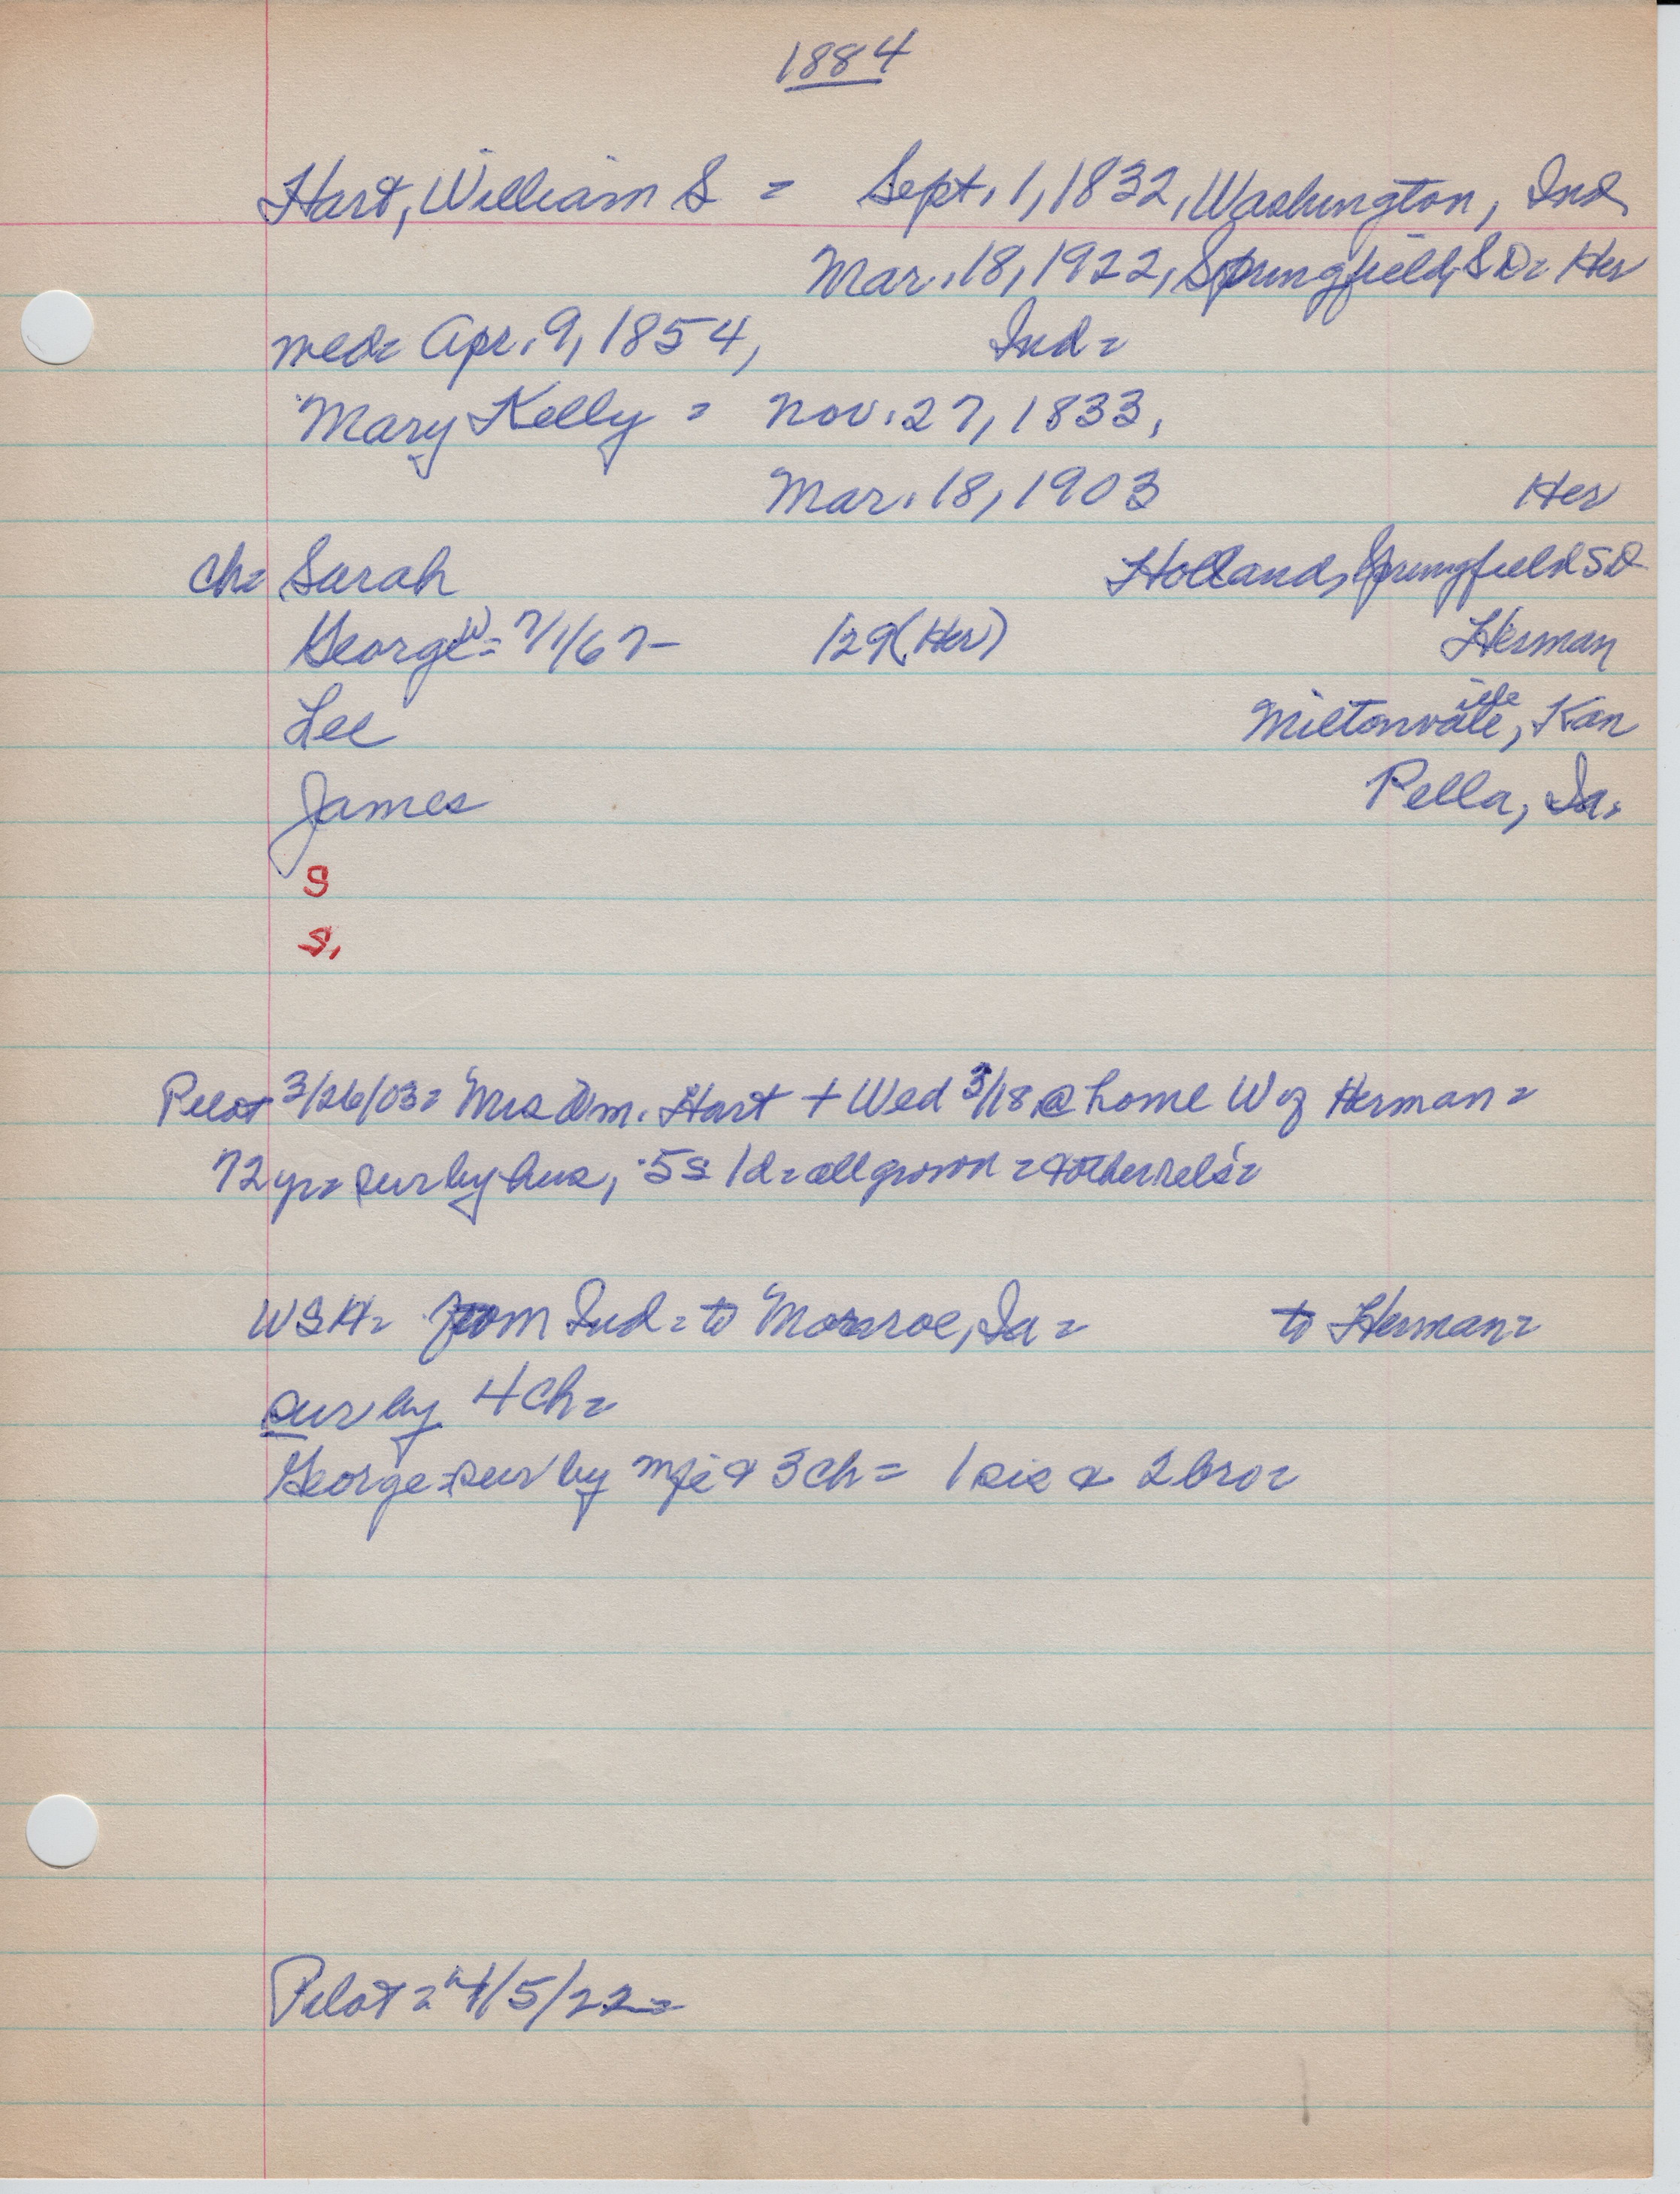 1884
Hart, William S = Sept. 1, 1832, Washington, Ind
Mar. 18, 1922, Springfield, SD = Her
med = Apr. 9, 1854, Ind =
Mary Kelly = Nov. 27, 1833,
Mar. 18, 1903 Her
Ch = Sarah Holland, Springfield SD
George W = 7/1/67- 129 (Her) Herman
Lee Miltonvale, Kan
James Pella, Ia.
S
S.
Pilot 3/26/03 = Mrs Wm. Hart + Wed 3/18 @ home W of Herman =
72 yr = sur by hus, 5s 1d = all grown = & other rels =
WSH = from Ind = to Monroe, Ia = to Herman =
sur by 4 Ch =
George = sur by & 3 ch = 1 sis & 2 bro =
Pilot = 4/5/22 =